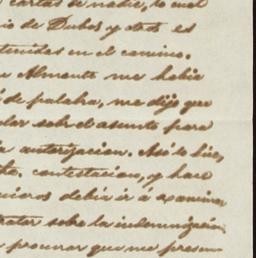 cartas de nadie, lo cual
de Dubos y otros es
en el camino.
Almonte me habia
de palabra, me dijo que
sobre el asunto para
autorizacion. Asi lo hice,
contestacion, y hace
debia ir á examinar
tratar sobre la indemnizacion
procurar que me